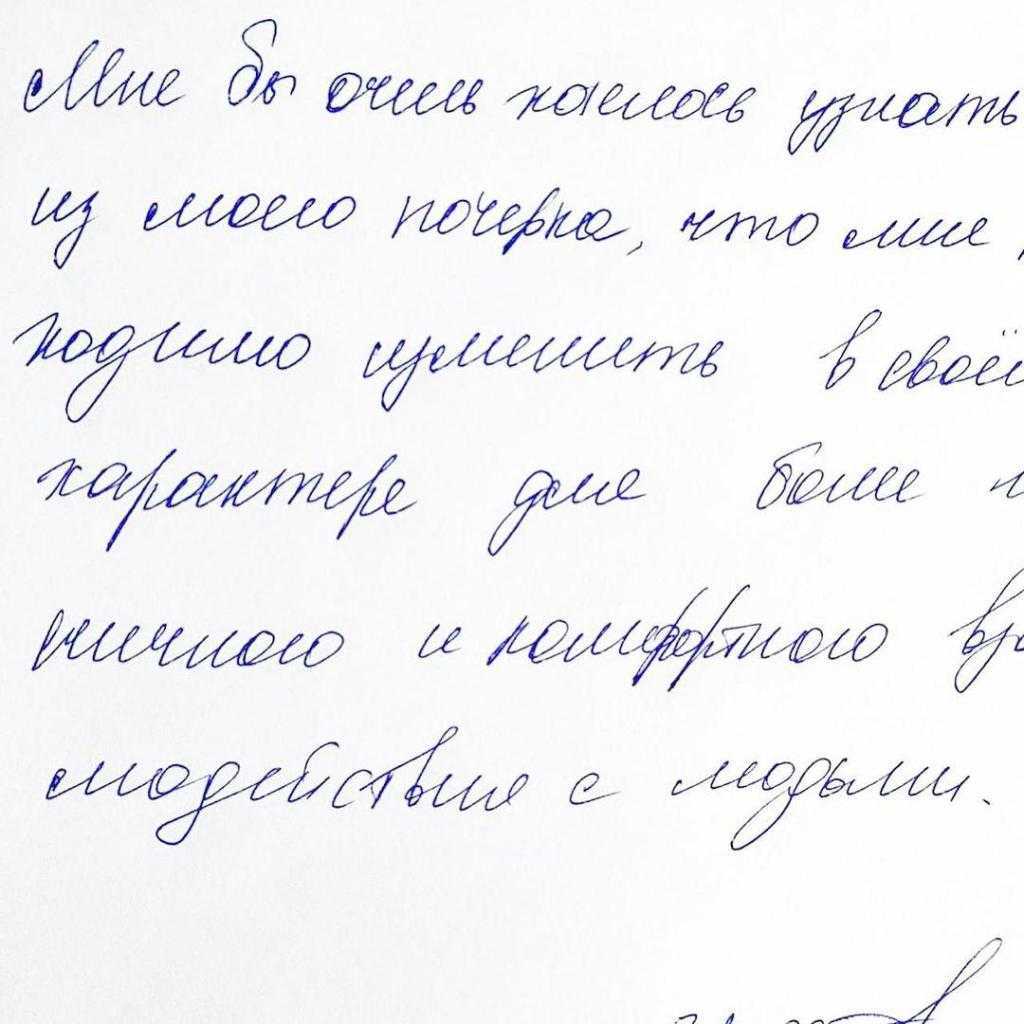 Мне бы очень хотелось узнать
из моего почерка, что мне
ходимо изменить в своём
характере для более
ничного и комфортного вза
модействия с людьми.